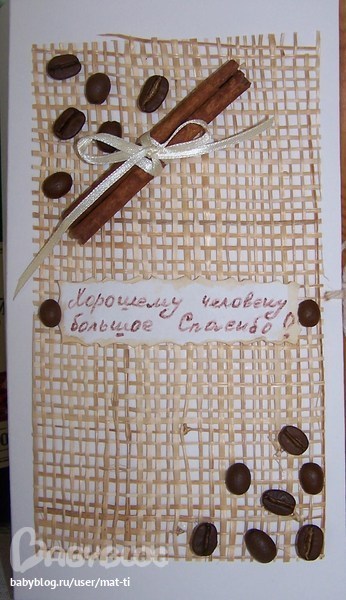 Хорошему человеку
большое Спасибо!
BABYBLOG
babyblog.ru/user/mat-ti